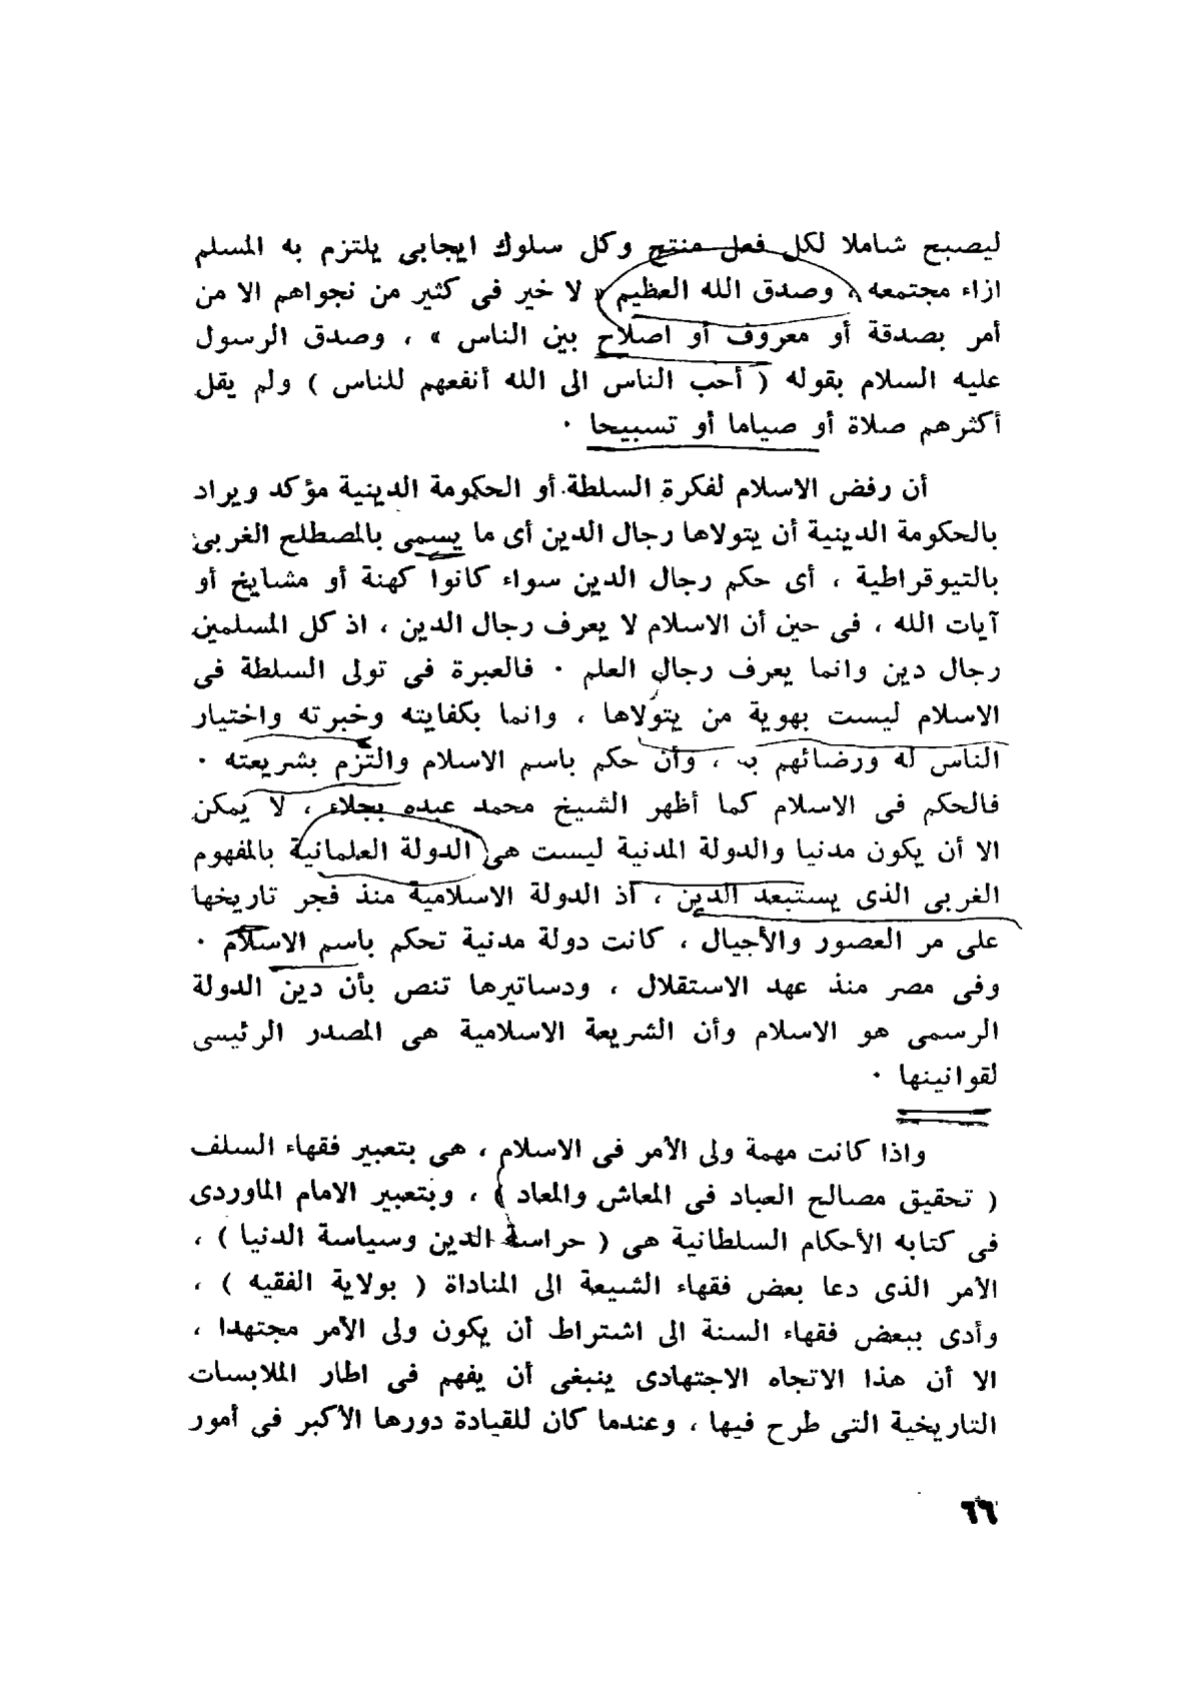 ليصبح شاملا لكل فعل منتج وكل سلوك ايجابى يلتزم به المسلم
ازاء مجتمعه ، وصدق الله العظيم « لا خير فى كثير من نجواهم الا من
أمر بصدقة أو معروف أو اصلاح بين الناس » ، وصدق الرسول
عليه السلام بقوله ( أحب الناس الى الله أنفعهم للناس ) ولم يقل
أكثرهم صلاة أو صياما أو تسبيحا ٠
أن رفض الاسلام لفكرة السلطة أو الحكومة الدينية مؤكد ويراد
بالحكومة الدينية أن يتولاها رجال الدين أى ما يسمى بالمصطلح الغربى
بالتيوقراطية ، أى حكم رجال الدين سواء كانوا كهنة أو مشايخ أو
آيات الله ، فى حين أن الاسلام لا يعرف رجال الدين ، اذ كل المسلمين
رجال دين وانما يعرف رجال العلم ٠ فالعبرة فى تولى السلطة فى
الاسلام ليست بهوية من يتولاها ، وانما بكفايته وخبرته واختيار
الناس له ورضائهم به ، وأن حكم باسم الاسلام والتزم بشريعته ٠
فالحكم فى الاسلام كما أظهر الشيخ محمد عبده بجلاء ، لا يمكن
الا أن يكون مدنيا والدولة المدنية ليست هى الدولة العلمانية بالمفهوم
الغربى الذى يستبعد الدين ، اذ الدولة الاسلامية منذ فجر تاريخها
على مر العصور والأجيال ، كانت دولة مدنية تحكم باسم الاسلام ٠
وفى مصر منذ عهد الاستقلال ، ودساتيرها تنص بأن دين الدولة
الرسمى هو الاسلام وأن الشريعة الاسلامية هى المصدر الرئيسى
لقوانينها ٠
واذا كانت مهمة ولى الأمر فى الاسلام ، هى بتعبير فقهاء السلف
( تحقيق مصالح العباد فى المعاش والمعاد ) ، وبتعبير الامام الماوردى
فى كتابه الأحكام السلطانية هى ( حراسة الدين وسياسة الدنيا ) ،
الأمر الذى دعا بعض فقهاء الشيعة الى المناداة ( بولاية الفقيه ) ،
وأدى ببعض فقهاء السنة الى اشتراط أن يكون ولى الأمر مجتهدا ،
الا أن هذا الاتجاه الاجتهادى ينبغى أن يفهم فى اطار الملابسات
التاريخية التى طرح فيها ، وعندما كان للقيادة دورها الأكبر فى أمور
٦٦